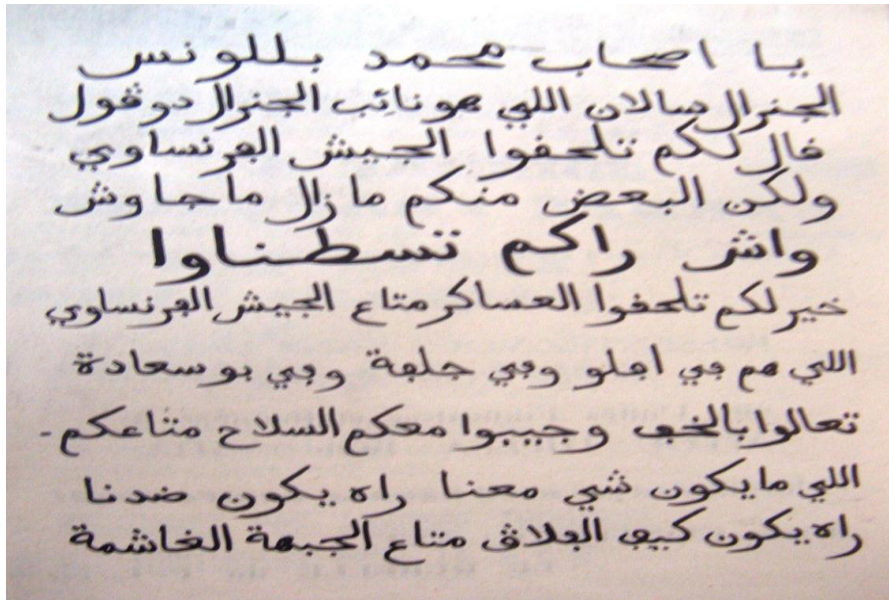 يا اصحاب محمد بللونس
الجنرال صالان اللي هو نائب الجنرال دوڨول
قال لكم تلحقوا الجيش الفرنساوي
ولكن البعض منكم مازال ماجاوش
واش راكم تسطناوا
خير لكم تلحقوا العساكر متاع الجيش الفرنساوي
اللي هم في افلو وفي جلفة وفي بوسعادة
تعالوا بالخف وجيبوا معكم السلاح متاعكم.
اللي مايكون شي معنا راه يكون ضدنا
راه يكون كيف الفلاڨ متاع الجبهة الغاشمة